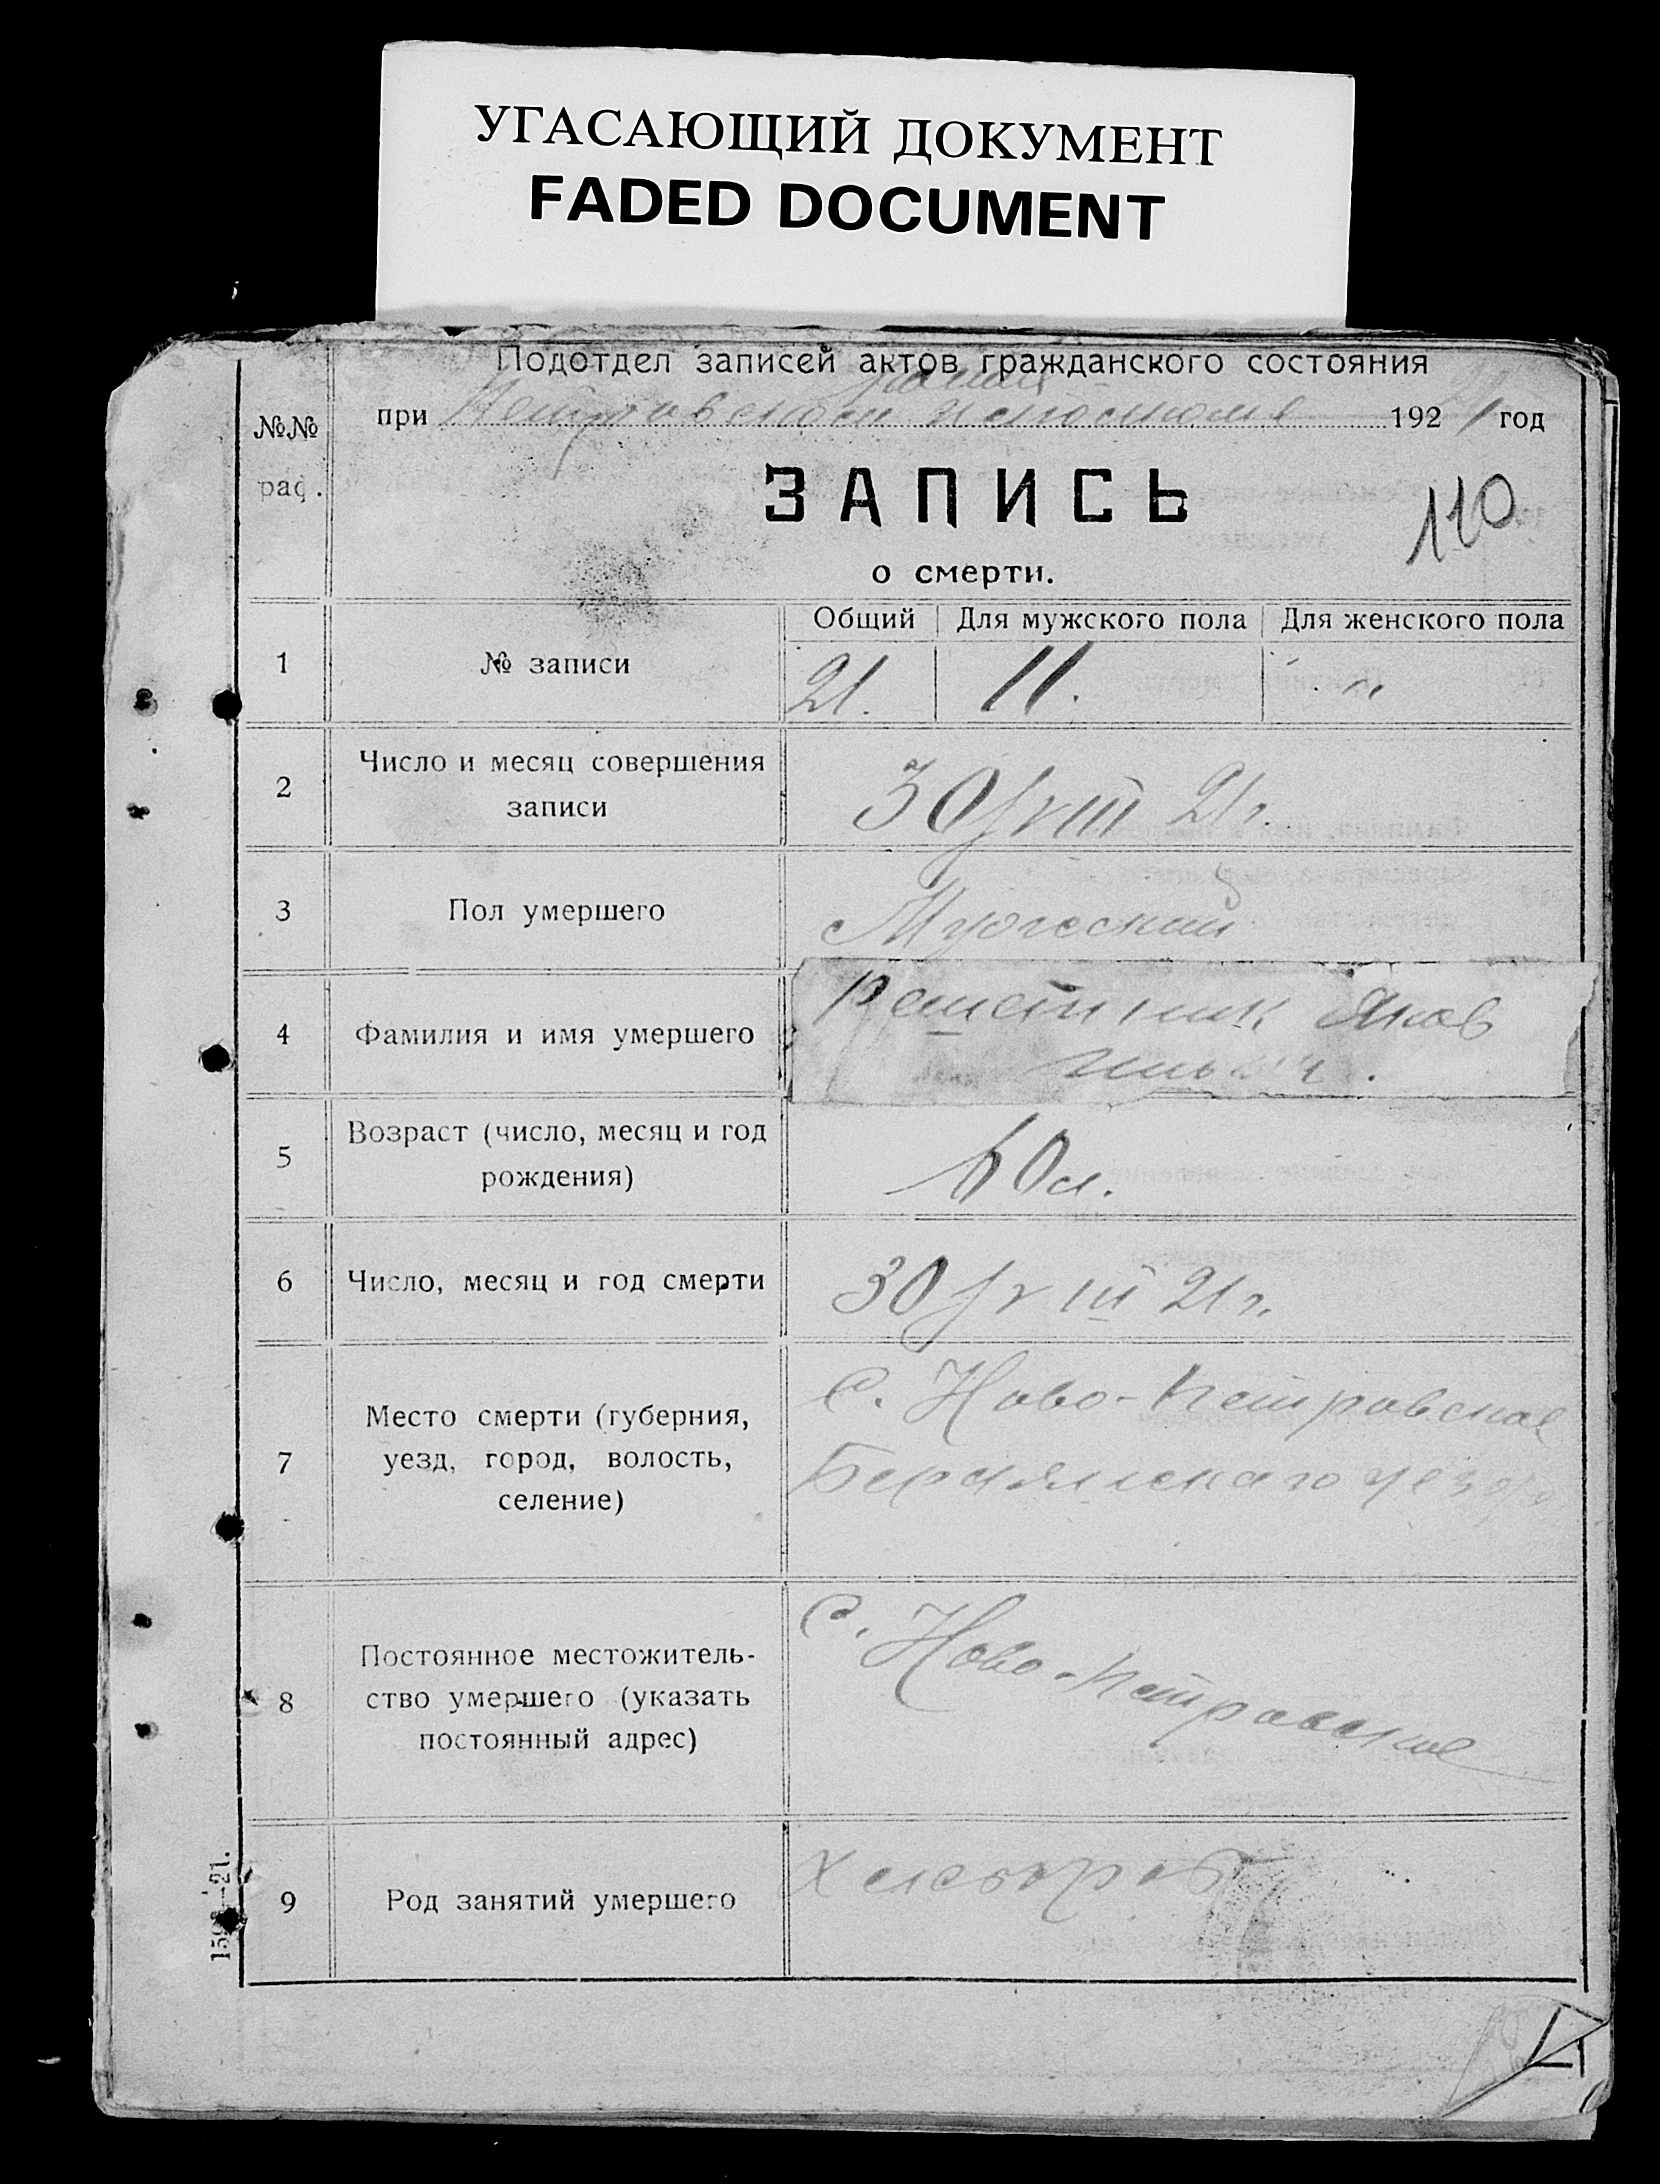 УГАСАЮЩИЙ ДОКУМЕНТ
FADED DOCUMENT
Подотдел записей актов гражданского состояния
№№ раф.
при Петровском исполкоме 1921 год
ЗАПИСЬ
110
о смерти.
Общий Для мужского пола Для женского пола
1 № записи 21. 11. "
2 Число и месяц совершения
записи
30/VIII 21 г.
3 Пол умершего Мужеский
4 Фамилия и имя умершего
Решетник Яков
5 Возраст (число, месяц и год
рождения)
60 л.
6 Число, месяц и год смерти 30/VIII 21 г.
7 Место смерти (губерния,
уезд, город, волость,
селение)
С. Ново-Петровское
Бердянскаго уезда
8 Постоянное местожитель-
ство умершего (указать
постоянный адрес)
С. Ново-Петровское
9 Род занятий умершего Хлебороб